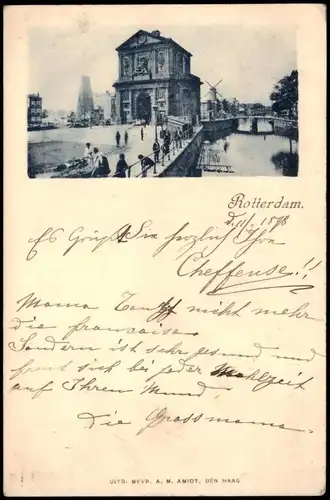 Rotterdam.
d. 11/ 1898
Es Grüßt Sie herzlich Ihre
Cheffeuse!!
Mama nicht mehr
die française
Sondern ist sehr gesund und
freut sich bei jeder Mahlzeit
auf Ihren Mund.
Die Grossmama.
UITG. MEVR. A. M. AMIOT, DEN HAAG